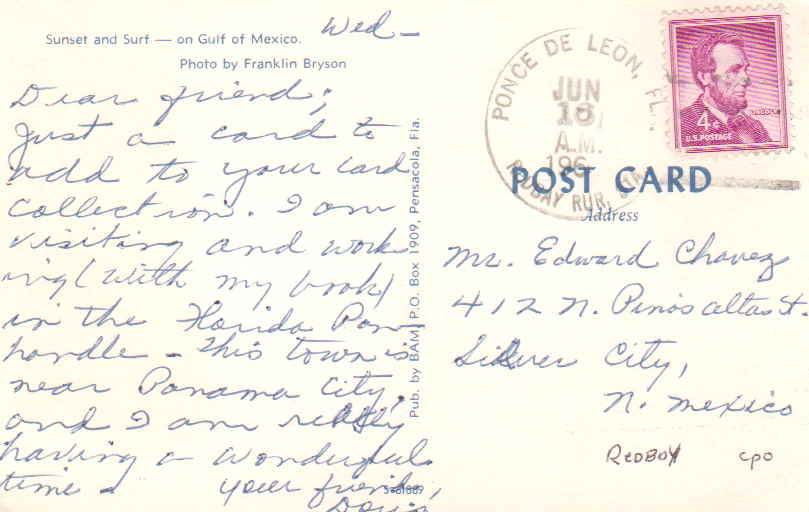 Sunset and Surf — on Gulf of Mexico.
Photo by Franklin Bryson
Wed—
Dear friend;
Just a card to
add to your card
collection. I am
visiting and work
ing (with my book)
in the Florida Pan
handle - This town is
near Panama City,
and I am really
having a wonderful
time - your friend,
Pub. by BAM, P.O. Box 1909, Pensacola, Fla.
PONCE DE LEON, FL
JUN
A.M.
196
RUR. STA
4¢
U.S. POSTAGE
LINCOLN
POST CARD
Address
Mr. Edward Chavez
412 N. Pinos altos St.
Silver City,
N. Mexico
REDBAY CPO